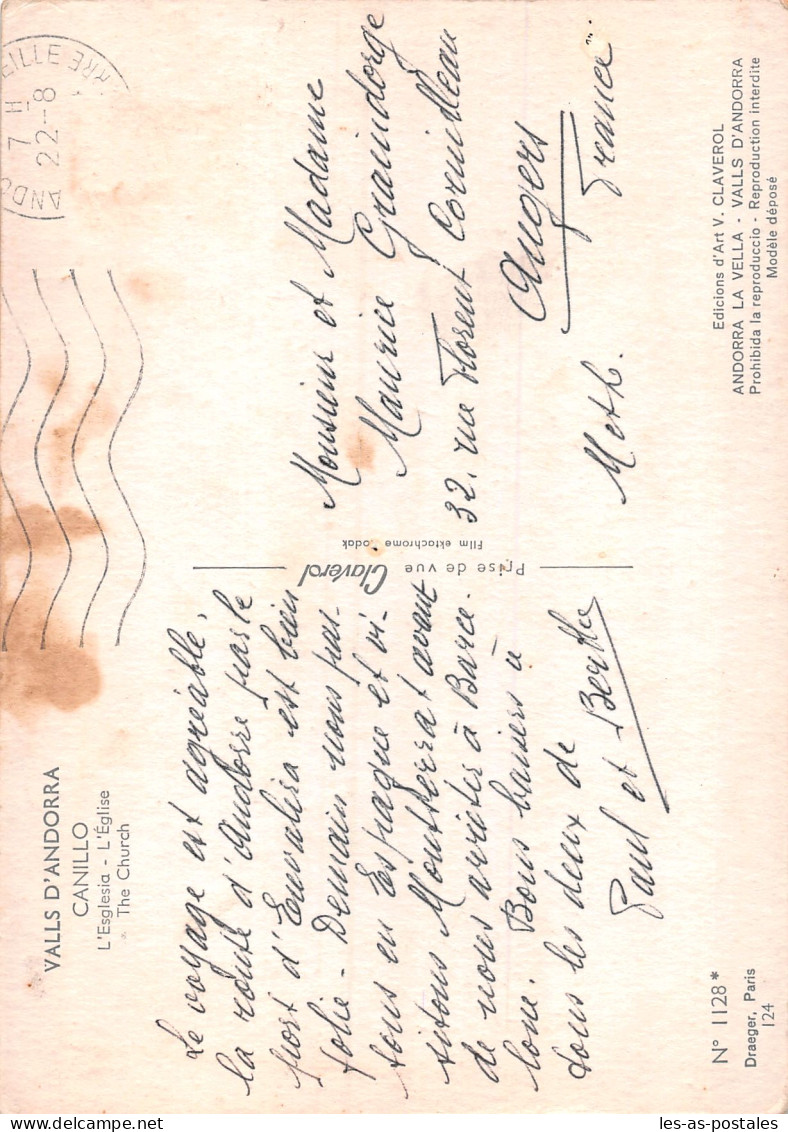 VALLS D'ANDORRA
CANILLO
L'Esglesia - L'Église
The Church
Le voyage est agréable,
la route d'Andorre par le
port d'Envalira est bien
jolie - Demain nous pas-
sons en Espagne et vi-
sitons Montserrat avant
de nous arrêter à Barce-
lone. Bons baisers à
tous les deux de
Paul et Berthe
N° 1128*
Draeger, Paris
124
Prise de vue Claverol
Film ektachrome Kodak
22-8
Monsieur et Madame
Maurice Graindorge
32. rue Florent Cornilleau
Angers
France
M. et L.
Edicions d'Art V. CLAVEROL
ANDORRA LA VELLA - VALLS D'ANDORRA
Prohibida la reproduccio - Reproduction interdite
Modèle déposé
les-as-postales.com